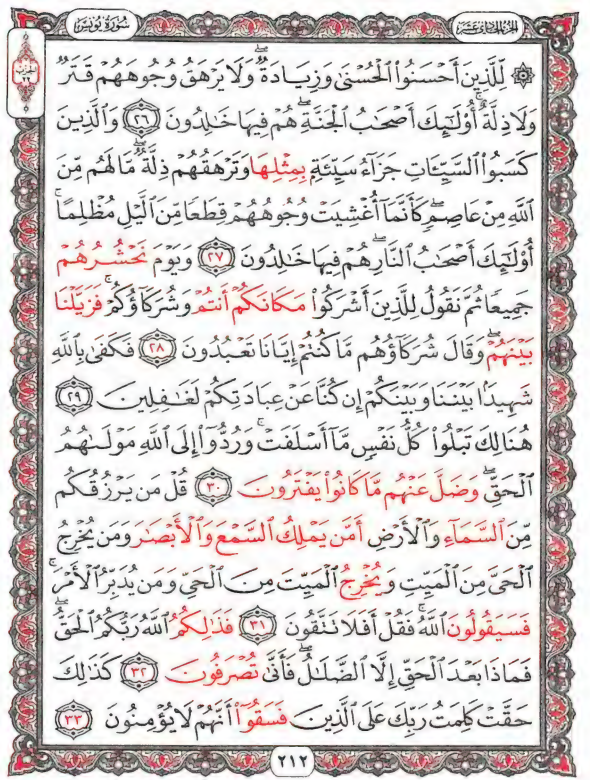 سُورَةُ يُونُسَ
الجُزْءُ الحَادِي عَشَرَ
۞ لِّلَّذِينَ أَحْسَنُوا۟ ٱلْحُسْنَىٰ وَزِيَادَةٌ ۖ وَلَا يَرْهَقُ وُجُوهَهُمْ قَتَرٌ
وَلَا ذِلَّةٌ ۚ أُو۟لَٰٓئِكَ أَصْحَٰبُ ٱلْجَنَّةِ ۖ هُمْ فِيهَا خَٰلِدُونَ ٢٦ وَٱلَّذِينَ
كَسَبُوا۟ ٱلسَّيِّـَٔاتِ جَزَآءُ سَيِّئَةٍۭ بِمِثْلِهَا وَتَرْهَقُهُمْ ذِلَّةٌ ۖ مَّا لَهُم مِّنَ
ٱللَّهِ مِنْ عَاصِمٍ ۖ كَأَنَّمَآ أُغْشِيَتْ وُجُوهُهُمْ قِطَعًا مِّنَ ٱلَّيْلِ مُظْلِمًا ۚ
أُو۟لَٰٓئِكَ أَصْحَٰبُ ٱلنَّارِ ۖ هُمْ فِيهَا خَٰلِدُونَ ٢٧ وَيَوْمَ نَحْشُرُهُمْ
جَمِيعًا ثُمَّ نَقُولُ لِلَّذِينَ أَشْرَكُوا۟ مَكَانَكُمْ أَنتُمْ وَشُرَكَآؤُكُمْ ۚ فَزَيَّلْنَا
بَيْنَهُمْ ۖ وَقَالَ شُرَكَآؤُهُم مَّا كُنتُمْ إِيَّانَا تَعْبُدُونَ ٢٨ فَكَفَىٰ بِٱللَّهِ
شَهِيدًۢا بَيْنَنَا وَبَيْنَكُمْ إِن كُنَّا عَنْ عِبَادَتِكُمْ لَغَٰفِلِينَ ٢٩
هُنَالِكَ تَبْلُوا۟ كُلُّ نَفْسٍ مَّآ أَسْلَفَتْ ۚ وَرُدُّوٓا۟ إِلَى ٱللَّهِ مَوْلَىٰهُمُ
ٱلْحَقِّ ۖ وَضَلَّ عَنْهُم مَّا كَانُوا۟ يَفْتَرُونَ ٣٠ قُلْ مَن يَرْزُقُكُم
مِّنَ ٱلسَّمَآءِ وَٱلْأَرْضِ أَمَّن يَمْلِكُ ٱلسَّمْعَ وَٱلْأَبْصَٰرَ وَمَن يُخْرِجُ
ٱلْحَىَّ مِنَ ٱلْمَيِّتِ وَيُخْرِجُ ٱلْمَيِّتَ مِنَ ٱلْحَىِّ وَمَن يُدَبِّرُ ٱلْأَمْرَ ۚ
فَسَيَقُولُونَ ٱللَّهُ ۚ فَقُلْ أَفَلَا تَتَّقُونَ ٣١ فَذَٰلِكُمُ ٱللَّهُ رَبُّكُمُ ٱلْحَقُّ ۖ
فَمَاذَا بَعْدَ ٱلْحَقِّ إِلَّا ٱلضَّلَٰلُ ۖ فَأَنَّىٰ تُصْرَفُونَ ٣٢ كَذَٰلِكَ
حَقَّتْ كَلِمَتُ رَبِّكَ عَلَى ٱلَّذِينَ فَسَقُوٓا۟ أَنَّهُمْ لَا يُؤْمِنُونَ ٣٣
٢١٢